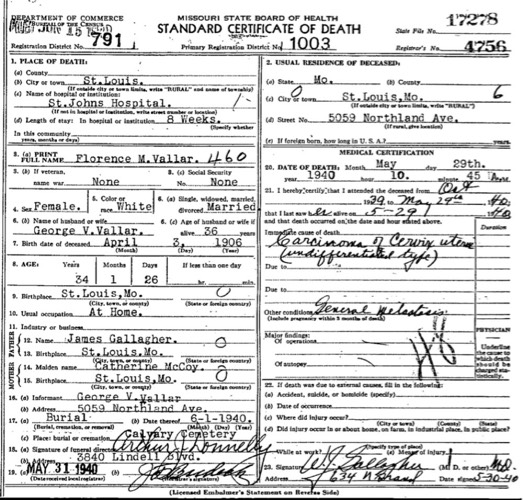 DEPARTMENT OF COMMERCE
BUREAU OF THE CENSUS
MISSOURI STATE BOARD OF HEALTH
STANDARD CERTIFICATE OF DEATH
State File No. 17278
Registration District No. 791
Primary Registration District No. 1003
Registrar's No. 4756
1. PLACE OF DEATH:
(a) County
(b) City or town St.Louis.
(If outside city or town limits, write "RURAL" and name of township)
(c) Name of hospital or institution:
St.Johns Hospital.
(If not in hospital or institution, write street number or location)
(d) Length of stay: In hospital or institution 8 Weeks.
(Specify whether
In this community
years, months or days)
2. USUAL RESIDENCE OF DECEASED:
(a) State Mo. (b) County
(c) City or town St.Louis,Mo. 6
(If outside city or town limits, write "RURAL")
(d) Street No. 5059 Northland Ave.
(If rural, give location)
(e) If foreign born, how long in U. S. A.? years.
3. (a) PRINT FULL NAME Florence M.Vallar. 460
3. (b) If veteran, name war None
3. (c) Social Security No. None
4. Sex Female.
5. Color or race White
6. (a) Single, widowed, married, divorced Married
6. (b) Name of husband or wife George V.Vallar.
6. (c) Age of husband or wife if alive 36 years
7. Birth date of deceased April 3, 1906
(Month) (Day) (Year)
8. AGE: Years Months Days If less than one day
34 1 26 hr. min.
9. Birthplace St.Louis,Mo. 0
(City, town, or county) (State or foreign country)
10. Usual occupation At Home.
11. Industry or business
FATHER
12. Name James Gallagher. 0
13. Birthplace St.Louis,Mo.
(City, town, or county) (State or foreign country)
MOTHER
14. Maiden name Catherine McCoy.
15. Birthplace St.Louis,Mo. 0
(City, town, or county) (State or foreign country)
16. (a) Informant George V.Vallar
(b) Address 5059 Northland Ave.
17. (a) Burial (b) Date thereof 6-1-1940.
(Burial, cremation, or removal) (Month) (Day) (Year)
(c) Place: burial or cremation Calvary Cemetery
18. (a) Signature of funeral director Arthur J. Donnelly
(b) Address 3840 Lindell Blvd.
19. (a) MAY 31 1940
MEDICAL CERTIFICATION
20. DATE OF DEATH: Month May day 29th.
year 1940 hour 10. minute 45
21. I hereby certify that I attended the deceased from Oct
1939 to May 29th 1940
that I last saw h alive on 5-29 1940
and that death occurred on the date and hour stated above.
Duration
Immediate cause of death
Carcinoma of Cervix uteri
(undifferentiated type)
Due to
Due to
Other conditions General Metastasis
(Include pregnancy within 3 months of death)
48
Major findings:
Of operations
Of autopsy
PHYSICIAN
Underline the cause to which death should be charged statistically.
22. If death was due to external causes, fill in the following:
(a) Accident, suicide, or homicide (specify)
(b) Date of occurrence
(c) Where did injury occur?
(City or town) (County) (State)
(d) Did injury occur in or about home, on farm, in industrial place, in public place?
(Specify type of place)
While at work? (e) Means of injury
23. Signature W J Gallagher (M. D. or other) MD.
Address 634 N Grand Date signed 5-30-40
(Licensed Embalmer's Statement on Reverse Side)